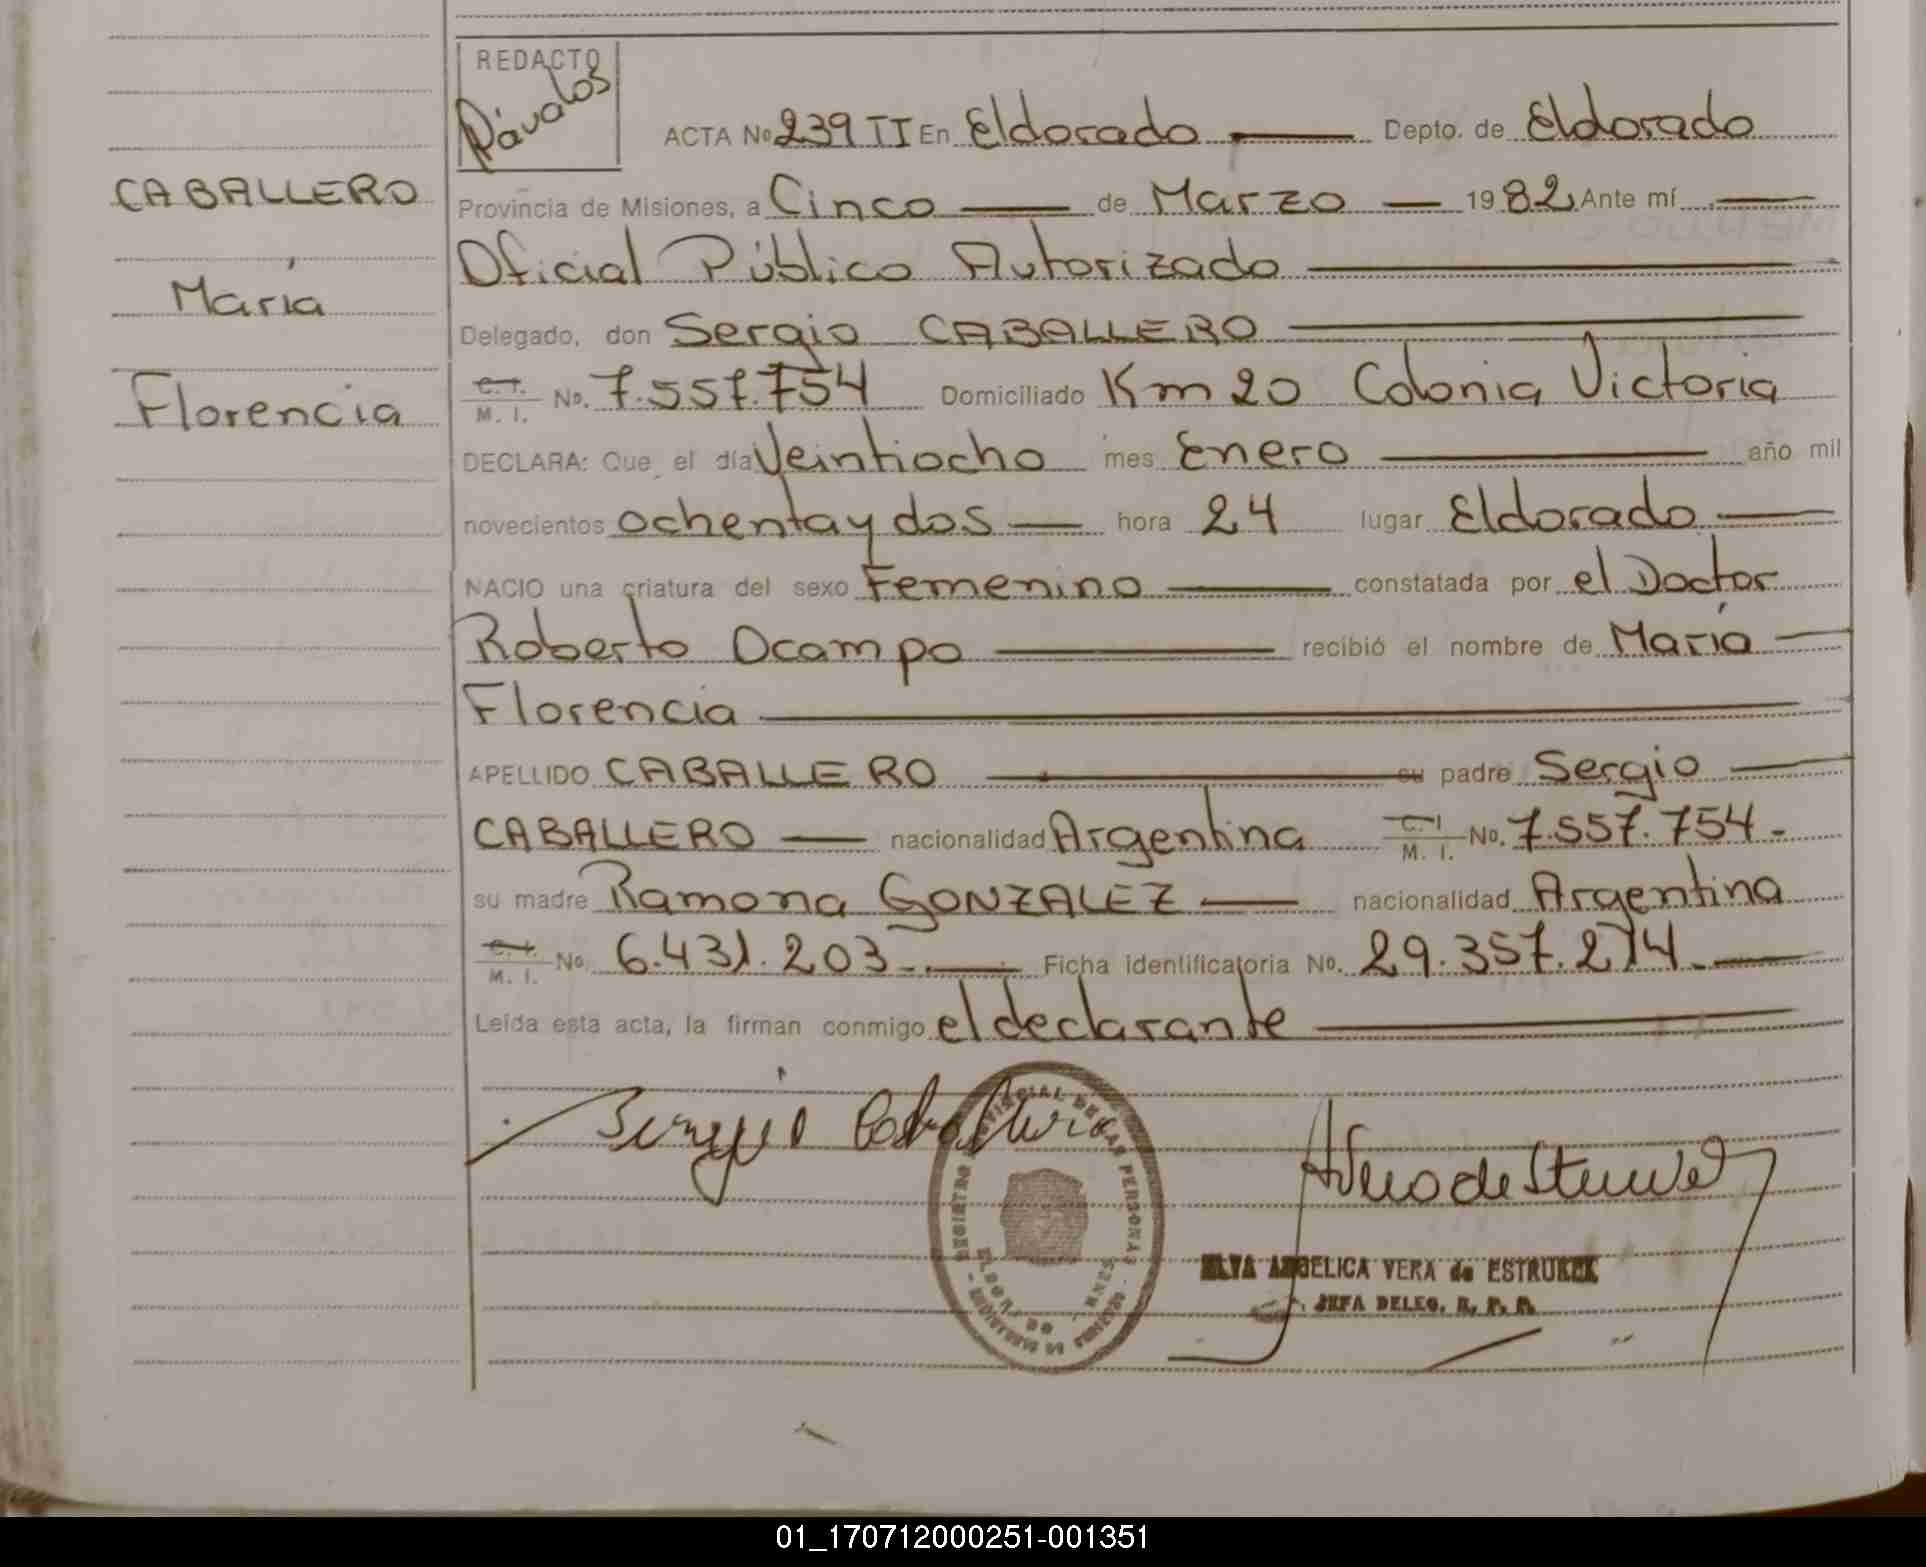 REDACTO
Dávalos
ACTA No 239 II En Eldorado Depto. de Eldorado
CABALLERO
María
Florencia
Provincia de Misiones, a Cinco de Marzo 1982 Ante mí
Oficial Público Autorizado
Delegado, don Sergio CABALLERO
C. I. M. I. No. 7.557.754 Domiciliado Km 20 Colonia Victoria
DECLARA: Que el día Veintiocho mes Enero año mil
novecientos ochenta y dos hora 24 lugar Eldorado
NACIO una criatura del sexo Femenino constatada por el Doctor
Roberto Ocampo recibió el nombre de María
Florencia
APELLIDO CABALLERO su padre Sergio
CABALLERO nacionalidad Argentina C. I. M. I. No. 7.557.754.-
su madre Ramona GONZALEZ nacionalidad Argentina
C. I. M. I. No. 6.431.203.- Ficha identificatoria No. 29.357.274.-
Leída esta acta, la firman conmigo el declarante
Sergio Caballero
REGISTRO PROVINCIAL DE LAS PERSONAS
ELDORADO
MISIONES
ELVA ANGELICA VERA de ESTRUKEK
JEFA DELEG. R. P. P.
01_170712000251-001351